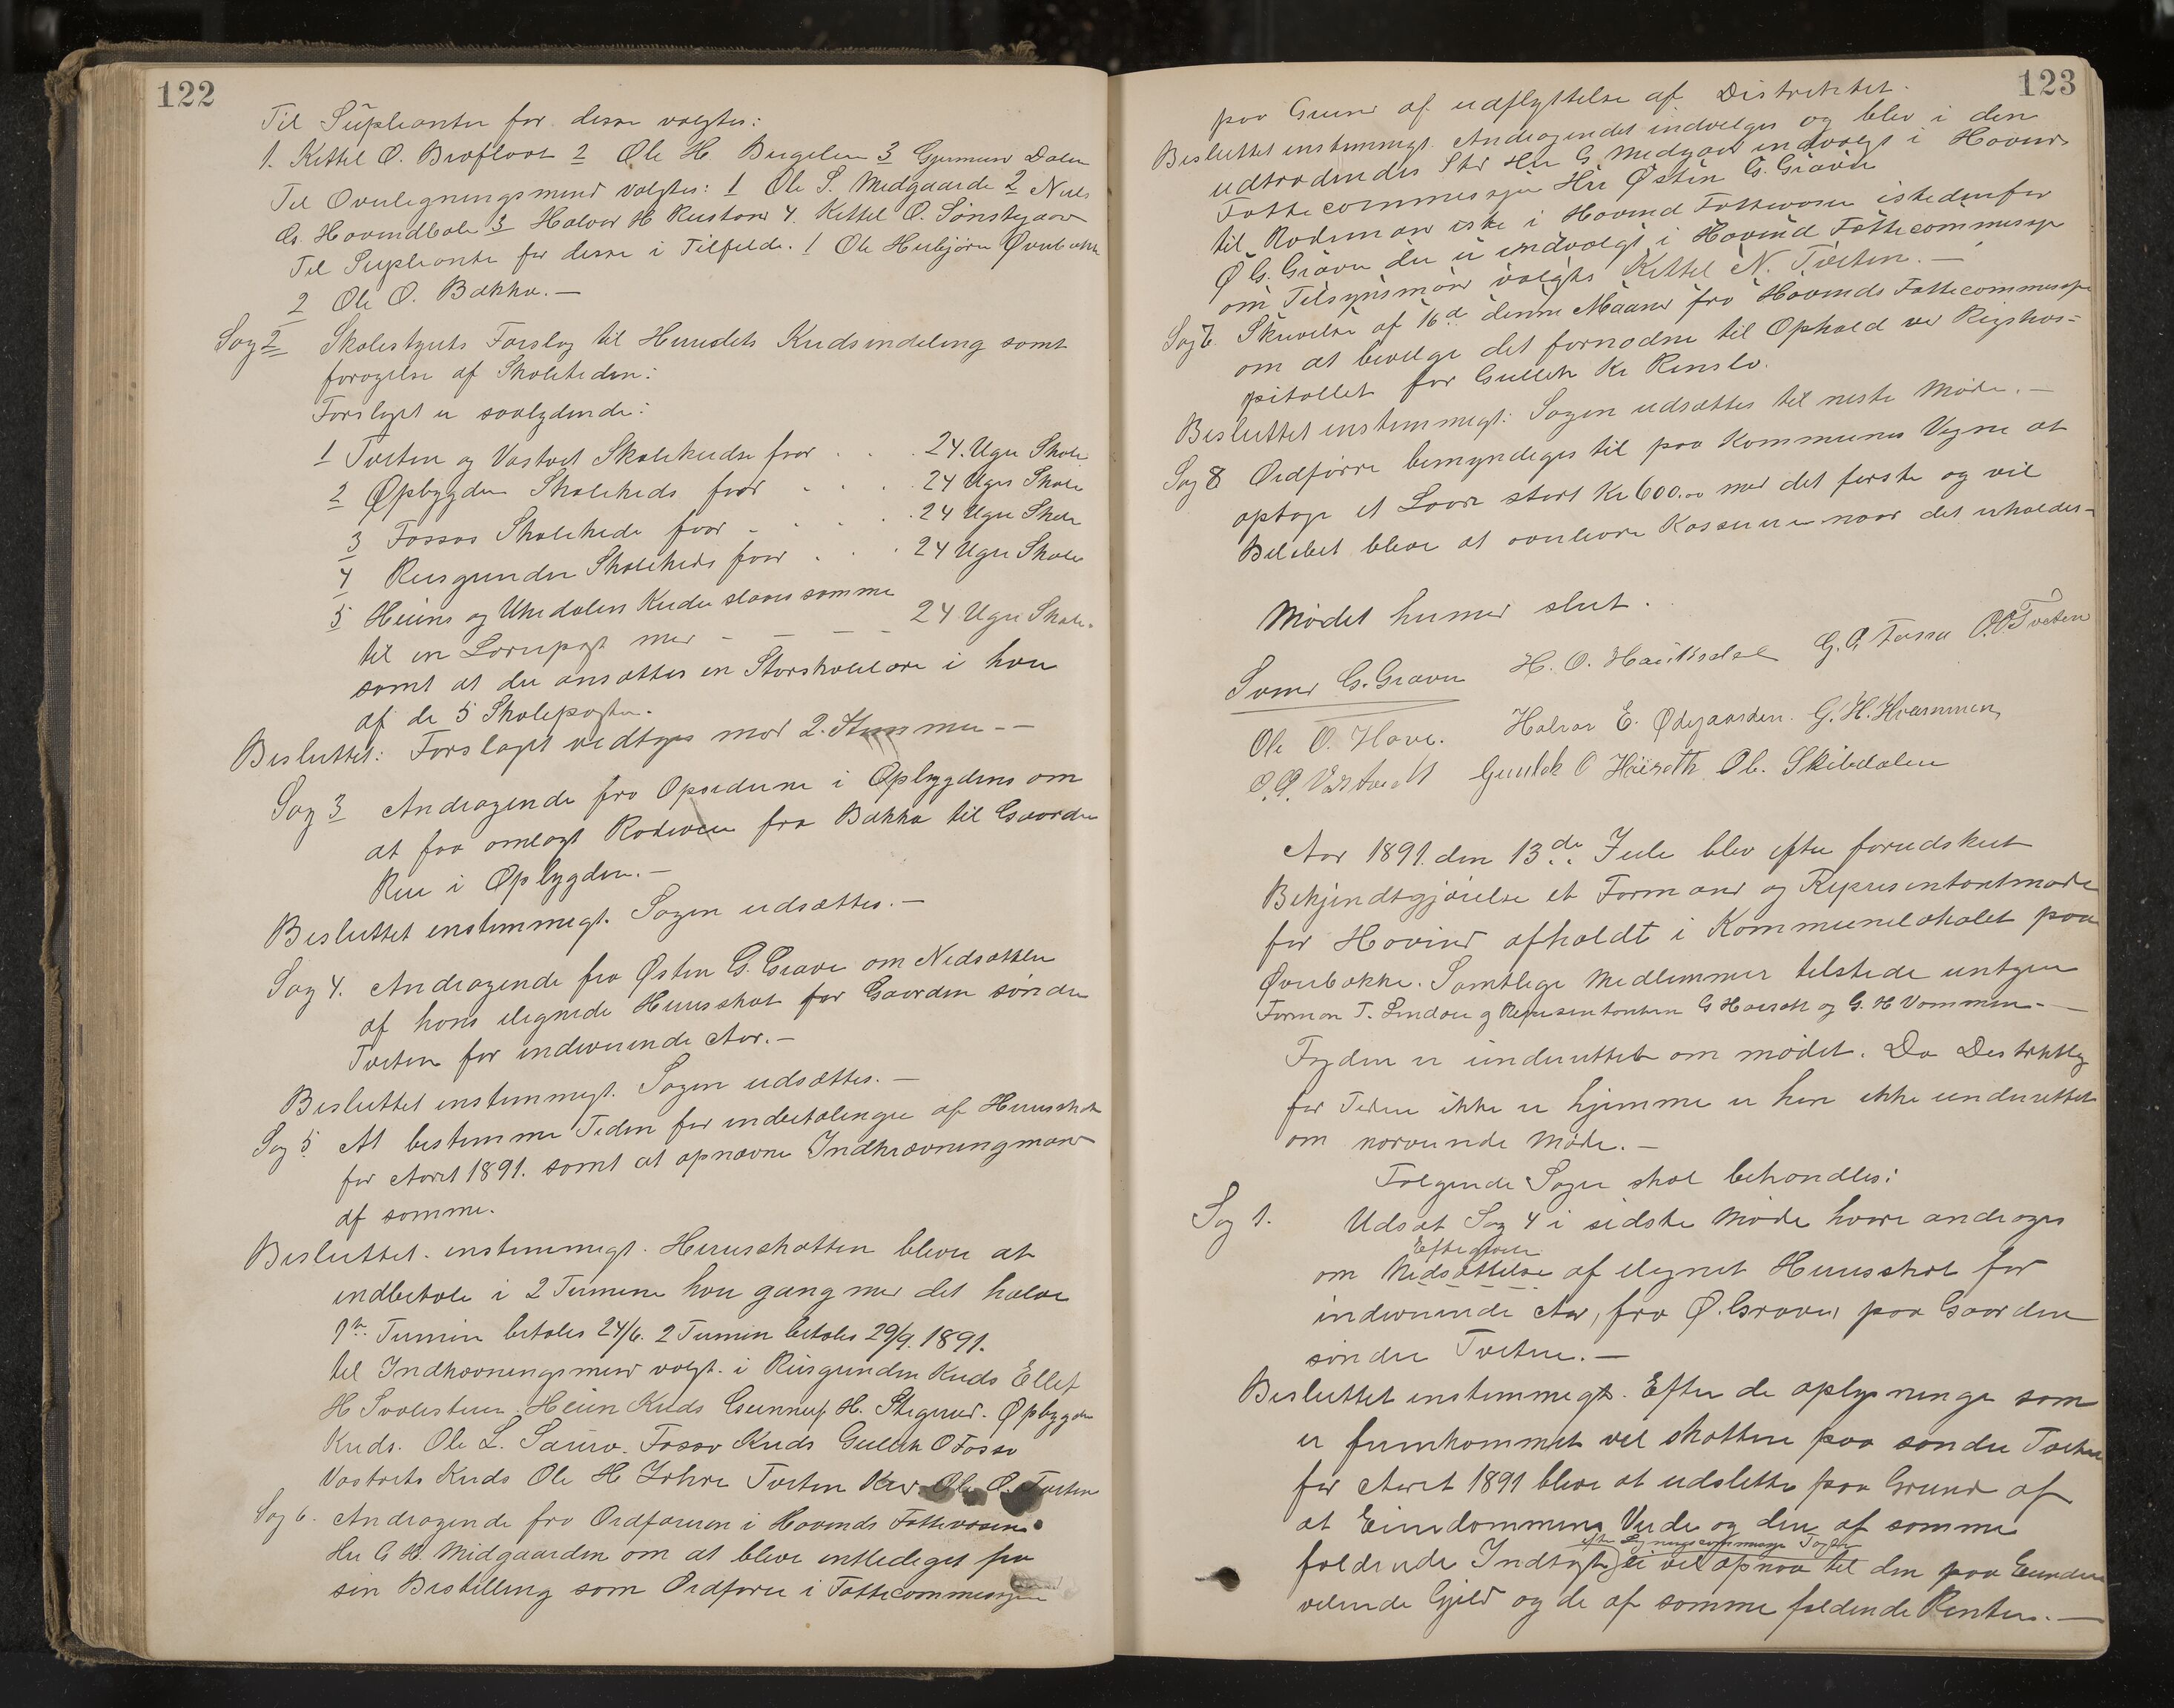 122
Til Supleanter for disse valgtes:
1. Kittil O. Brofloat 2 Ole H. Bugelien 3 Gjermund Dalen
Til Overlegningsmend valgtes: 1 Ole S. Midgaarde 2 Nils
G. Hovindbole 3 Halvor H. Rustan 4. Kittel O. Sønstegaar
Til Supleante for disse i Tilfelde. 1 Ole Herbjørn Øverbække
2 Ole O. Bækka.—
Sag 2 Skolestyrets Forslag til Herredets Kredsindeling samt
forøgelse af Skoletiden:
Forslaget er saalydende:
1 Tveten og Vastveit Skolekredse faar . . . 24. Uger Skole
2 Øpbygden Skolekreds faar . . . 24 Uger Skole
3 Fossos Skolekreds faar - . . . 24 Uger Skole
4 Rusgrenden Skolekreds faar . . . 24 Uger Skole
5 Heiens og Uhredalens Kredse slaaes somme
til en Lærerpost med - — — 24 Uger Skole.
samt at der ansættes en Storskolelære i hver
af de 5 Skoleposter.
Besluttet: Forslaget vedtages mod 2. Stemmer.—
Sag 3 Andragende fra Opsiderne i Øpbygdens om
at faa omlagt Rodeveien fra Bækka til Gaarden
Rue i Øpbygden.—
Besluttet enstemmigt. Sagen udsættes.—
Sag 4. Andragende fra Østen G. Grave om Nedsættelse
af hans ilignede Herredsskat for Gaarden søndre
Tveten for indeværende Aar.—
Besluttet enstemmigt. Sagen udsættes.—
Sag 5 At bestemme Tiden for indbetalingen af Herredsskat
for Aaret 1891. samt at opnævne Indkrævningmænd
af somme.
Besluttet. enstemmigt. Herredsskatten bliver at
indbetale i 2 Terminer hver gang med det halve
1ste Termin betales 24/6. 2 Termin betales 29/9. 1891.
til Indkrævningsmænd valgt. i Rusgrenden Kreds Ellef
H Svalestuen. Heien Kreds Gunnuf H. Stegerud. Øpbygden
Kreds. Ole L. Sauro. Fosso Kreds Gullik O Fosso
Vastveits Kreds Ole H Tveten Kreds Ole O. Tveten
Sag 6. Andragende fra Ordføreren i Hovinds Fattivæsen
Herr G H. Midgaarden om at blive entlediget fra
sin Bestilling som Ordfører i Fattecommesjonen
123
paa Grund af udflyttelse af Distriktet.
Besluttet enstemmigt. Andragendet indvelges og blev i den
udtrædendes Sted Her G Midgaar indvalgt i Hovinds
Fattecommessjon Her Østen G. Graver
til Rodemand iste i Hovind Fattevæsen istedenfor
Ø G. Graver der er indvalgt i Hovind Fattecommessjon
om Tilsynsmand valgtes Kittel N. Tveten.—
Sag 7. Skrivelse af 16de denne Maaned fra Hovinds Fattecommessjon
om at bevilge det fornødne til Ophold ved Rigshos=
pitallet for Gullek K. Renslo.
Besluttet enstemmigt: Sagen udsættes til neste Møde.—
Sag 8 Ordførre bemyndiges til paa Kommunes Vegne at
optage et Laan stort Kr 600.00 med det første og vil
Beløbet blive at overlevere Kassereren naar det erholdes—
Mødet heved slut.
Svend G. Graver H. O. Haukedal G. O. Fosso O.O. Tveten
Ole O. Hove. Halvor E. Ødegaarden. G. H. Kvammen,
O. O. Vastveit Gunlek O Haiseth Ol. Skibdalen
Aar 1891. den 13de Jule blev efter forudskeet
Bekjendtgjørelse et Formand og Representantmøde
for Hovind afholdt i Kommunelokalet paa
Øverbække. Samtlige Medlemmer tilstede untgen
Forman T. Lindaas og Representanten G Haiseth og G. H Vammen.—
Fogden er underrettet om mødet. Da Distriktlæg
for Tiden ikke er hjemme er han ikke underrettet
om nærværende Møde.—
Følgende Sager skal behandles:
Sag 1. Udsat Sag 4 i sidste Møde hvori andrages
Eftergivelse
om Nedsættelse af ilignet Herredsskat for
indeværende Aar, fra Ø. Graver paa Gaarden
søndre Tveten.—
Besluttet enstemmigt. Efter de oplysninge som
er fremkommet vil skatten paa søndre Tveten
for Aaret 1891 blive at udslette paa Grund af
at Eiendommens Verde og den af somme
efter Ligningscommesjons Taxter
faldende Indtægt ei vil opnaa til den paa Eiendom
vilende Gjeld og de af somme faldende Renter.—